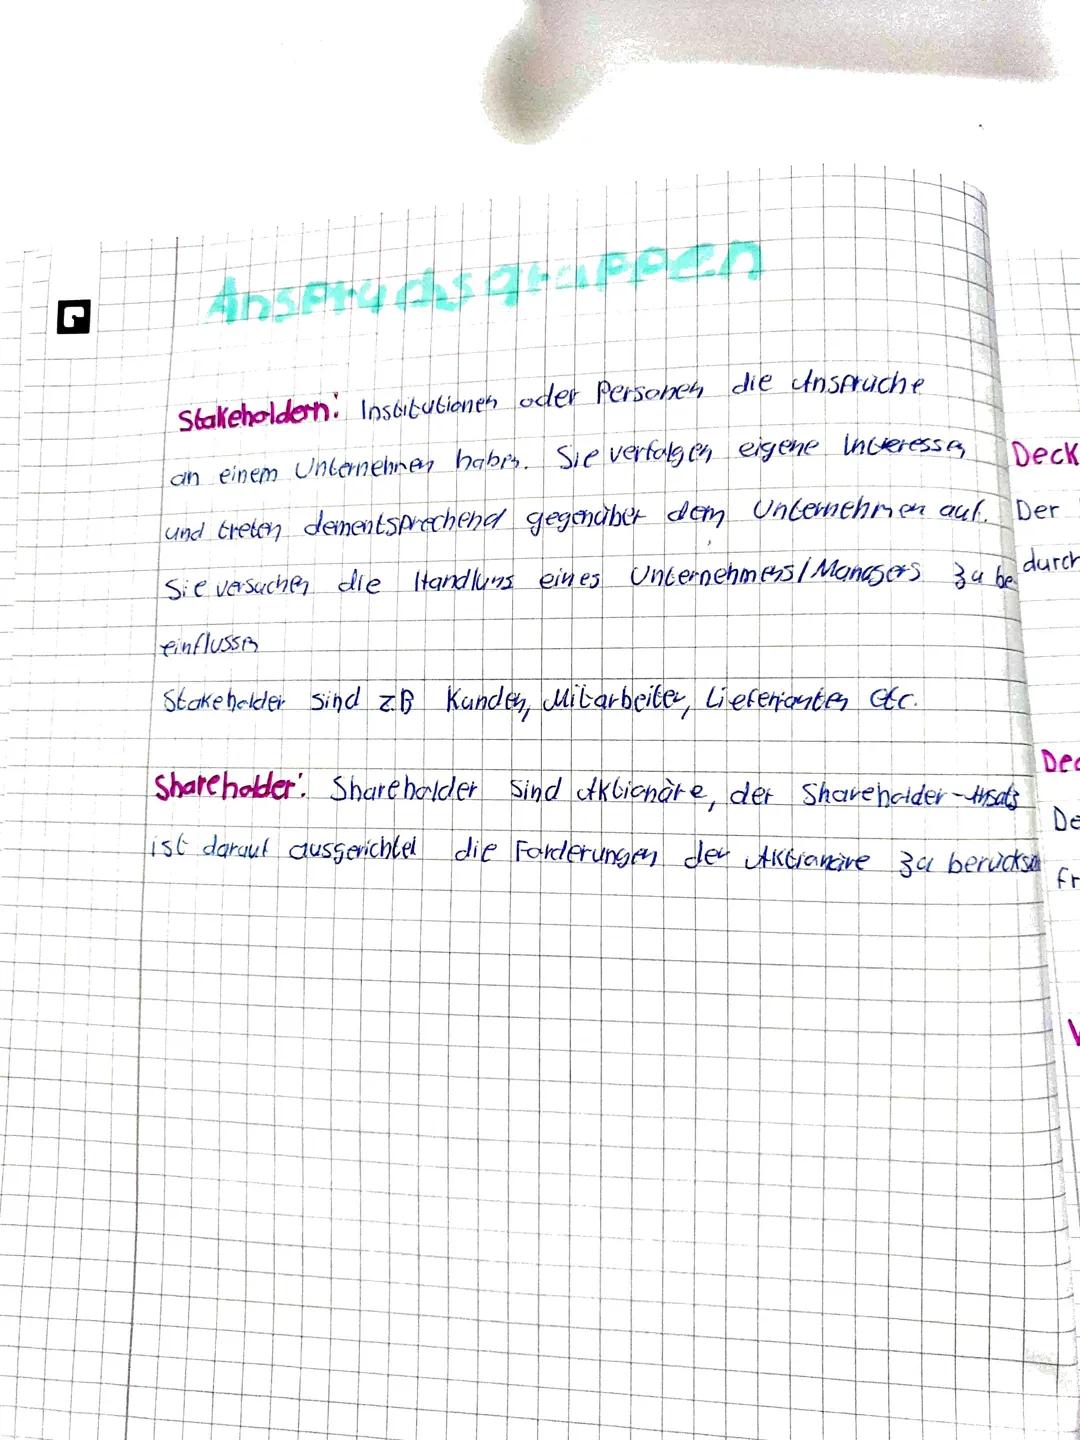 Anspruchsgruppen
Stakeholdern: Institutionen oder Personen die Ansprüche
an einem Unternehmen haben. Sie verfolgen eigene Interessen
und treten dementsprechend gegenüber dem Unternehmen auf.
Sie versuchen die Handlung eines Unternehmens/Managers zu be
einflussen
Stakeholder sind z.B Kunden, Mitarbeiter, Lieferianten etc.
Shareholder: Shareholder sind Aktionäre, der Shareholder-Ansatz
ist darauf ausgerichtet die Forderungen der Aktionäre zu
Deck
Der
durch
De
fr